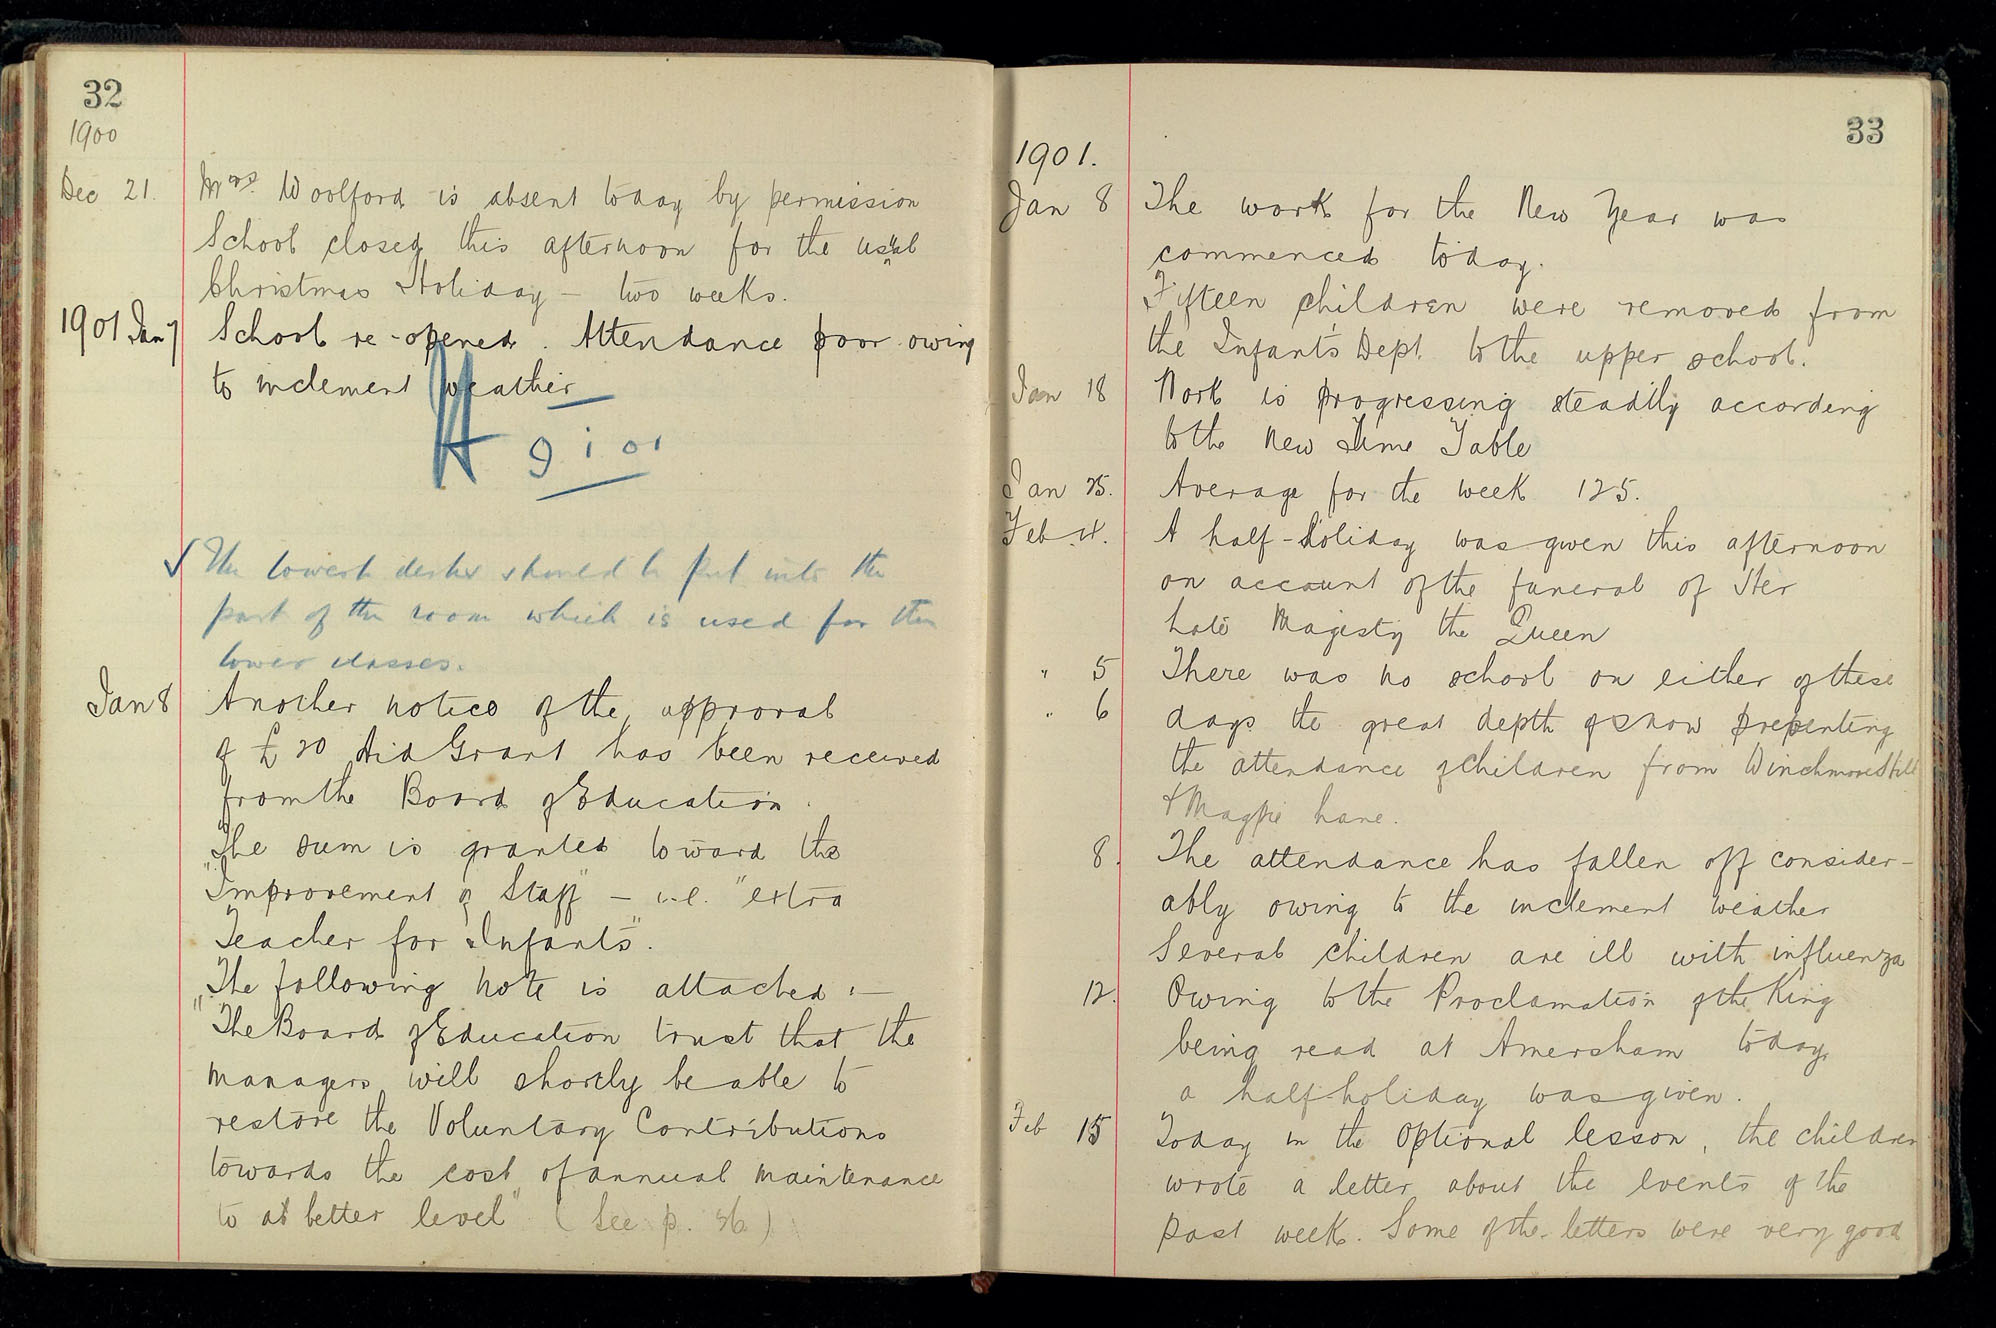 32
1900
Dec 21. Mrs. Woolford is absent today by permission
School closed this afternoon for the usual
Christmas Holiday – two weeks.
1901 Jan 7 School re-opened. Attendance poor owing
to inclement weather
9 1 01
✓ The lowest desks should be put into the
part of the room which is used for the
lower classes.
Jan 8 Another notice of the approval
of £20 Aid Grant has been received
from the Board of Education.
The sum is granted toward the
"Improvement of Staff" – i.e. "extra
Teacher for Infants".
The following note is attached :—
"The Board of Education trust that the
managers will shortly be able to
restore the Voluntary Contributions
towards the cost of annual maintenance
to a better level" (See p. 36)
33
1901.
Jan 8 The work for the New Year was
commenced today.
Fifteen children were removed from
the Infants' Dept. to the upper school.
Jan 18 Work is progressing steadily according
to the New Time Table
Jan 25. Average for the week 125.
Feb 4. A half-holiday was given this afternoon
on account of the funeral of Her
late Magesty the Queen
" 5 There was no school on either of these
" 6 days the great depth of snow preventing
the attendance of children from Winchmore Hill
& Magpie Lane.
8. The attendance has fallen off consider-
ably owing to the inclement weather
Several children are ill with influenza
12. Owing to the Proclamation of the King
being read at Amersham today,
a half-holiday was given.
Feb 15 Today in the Optional lesson, the children
wrote a letter about the events of the
past week. Some of the letters were very good